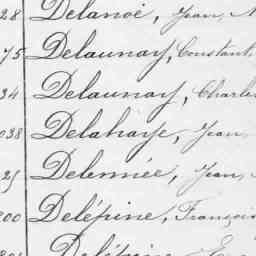 28 Delanoë, Jean,
75 Delaunay, Constant,
34 Delaunay, Charles
038 Delahaye, Jean,
25 Delennée, Jean,
200 Delépine, François
Delépine,